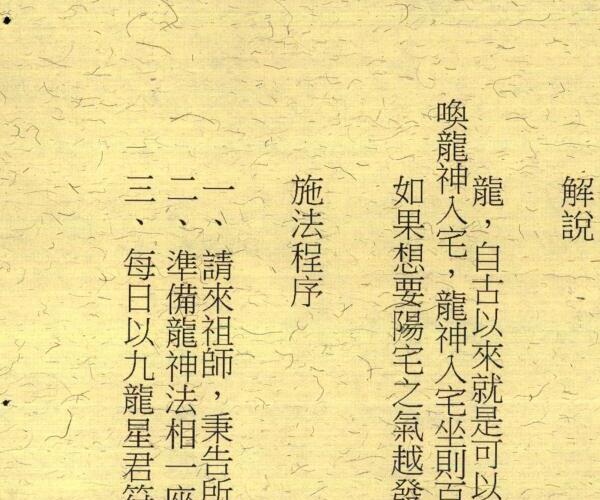 解說
龍，自古以來就是可以
喚龍神入宅，龍神入宅坐則百
如果想要陽宅之氣越發
施法程序
一、請來祖師，秉告所
二、準備龍神法相一座
三、每日以九龍星君符